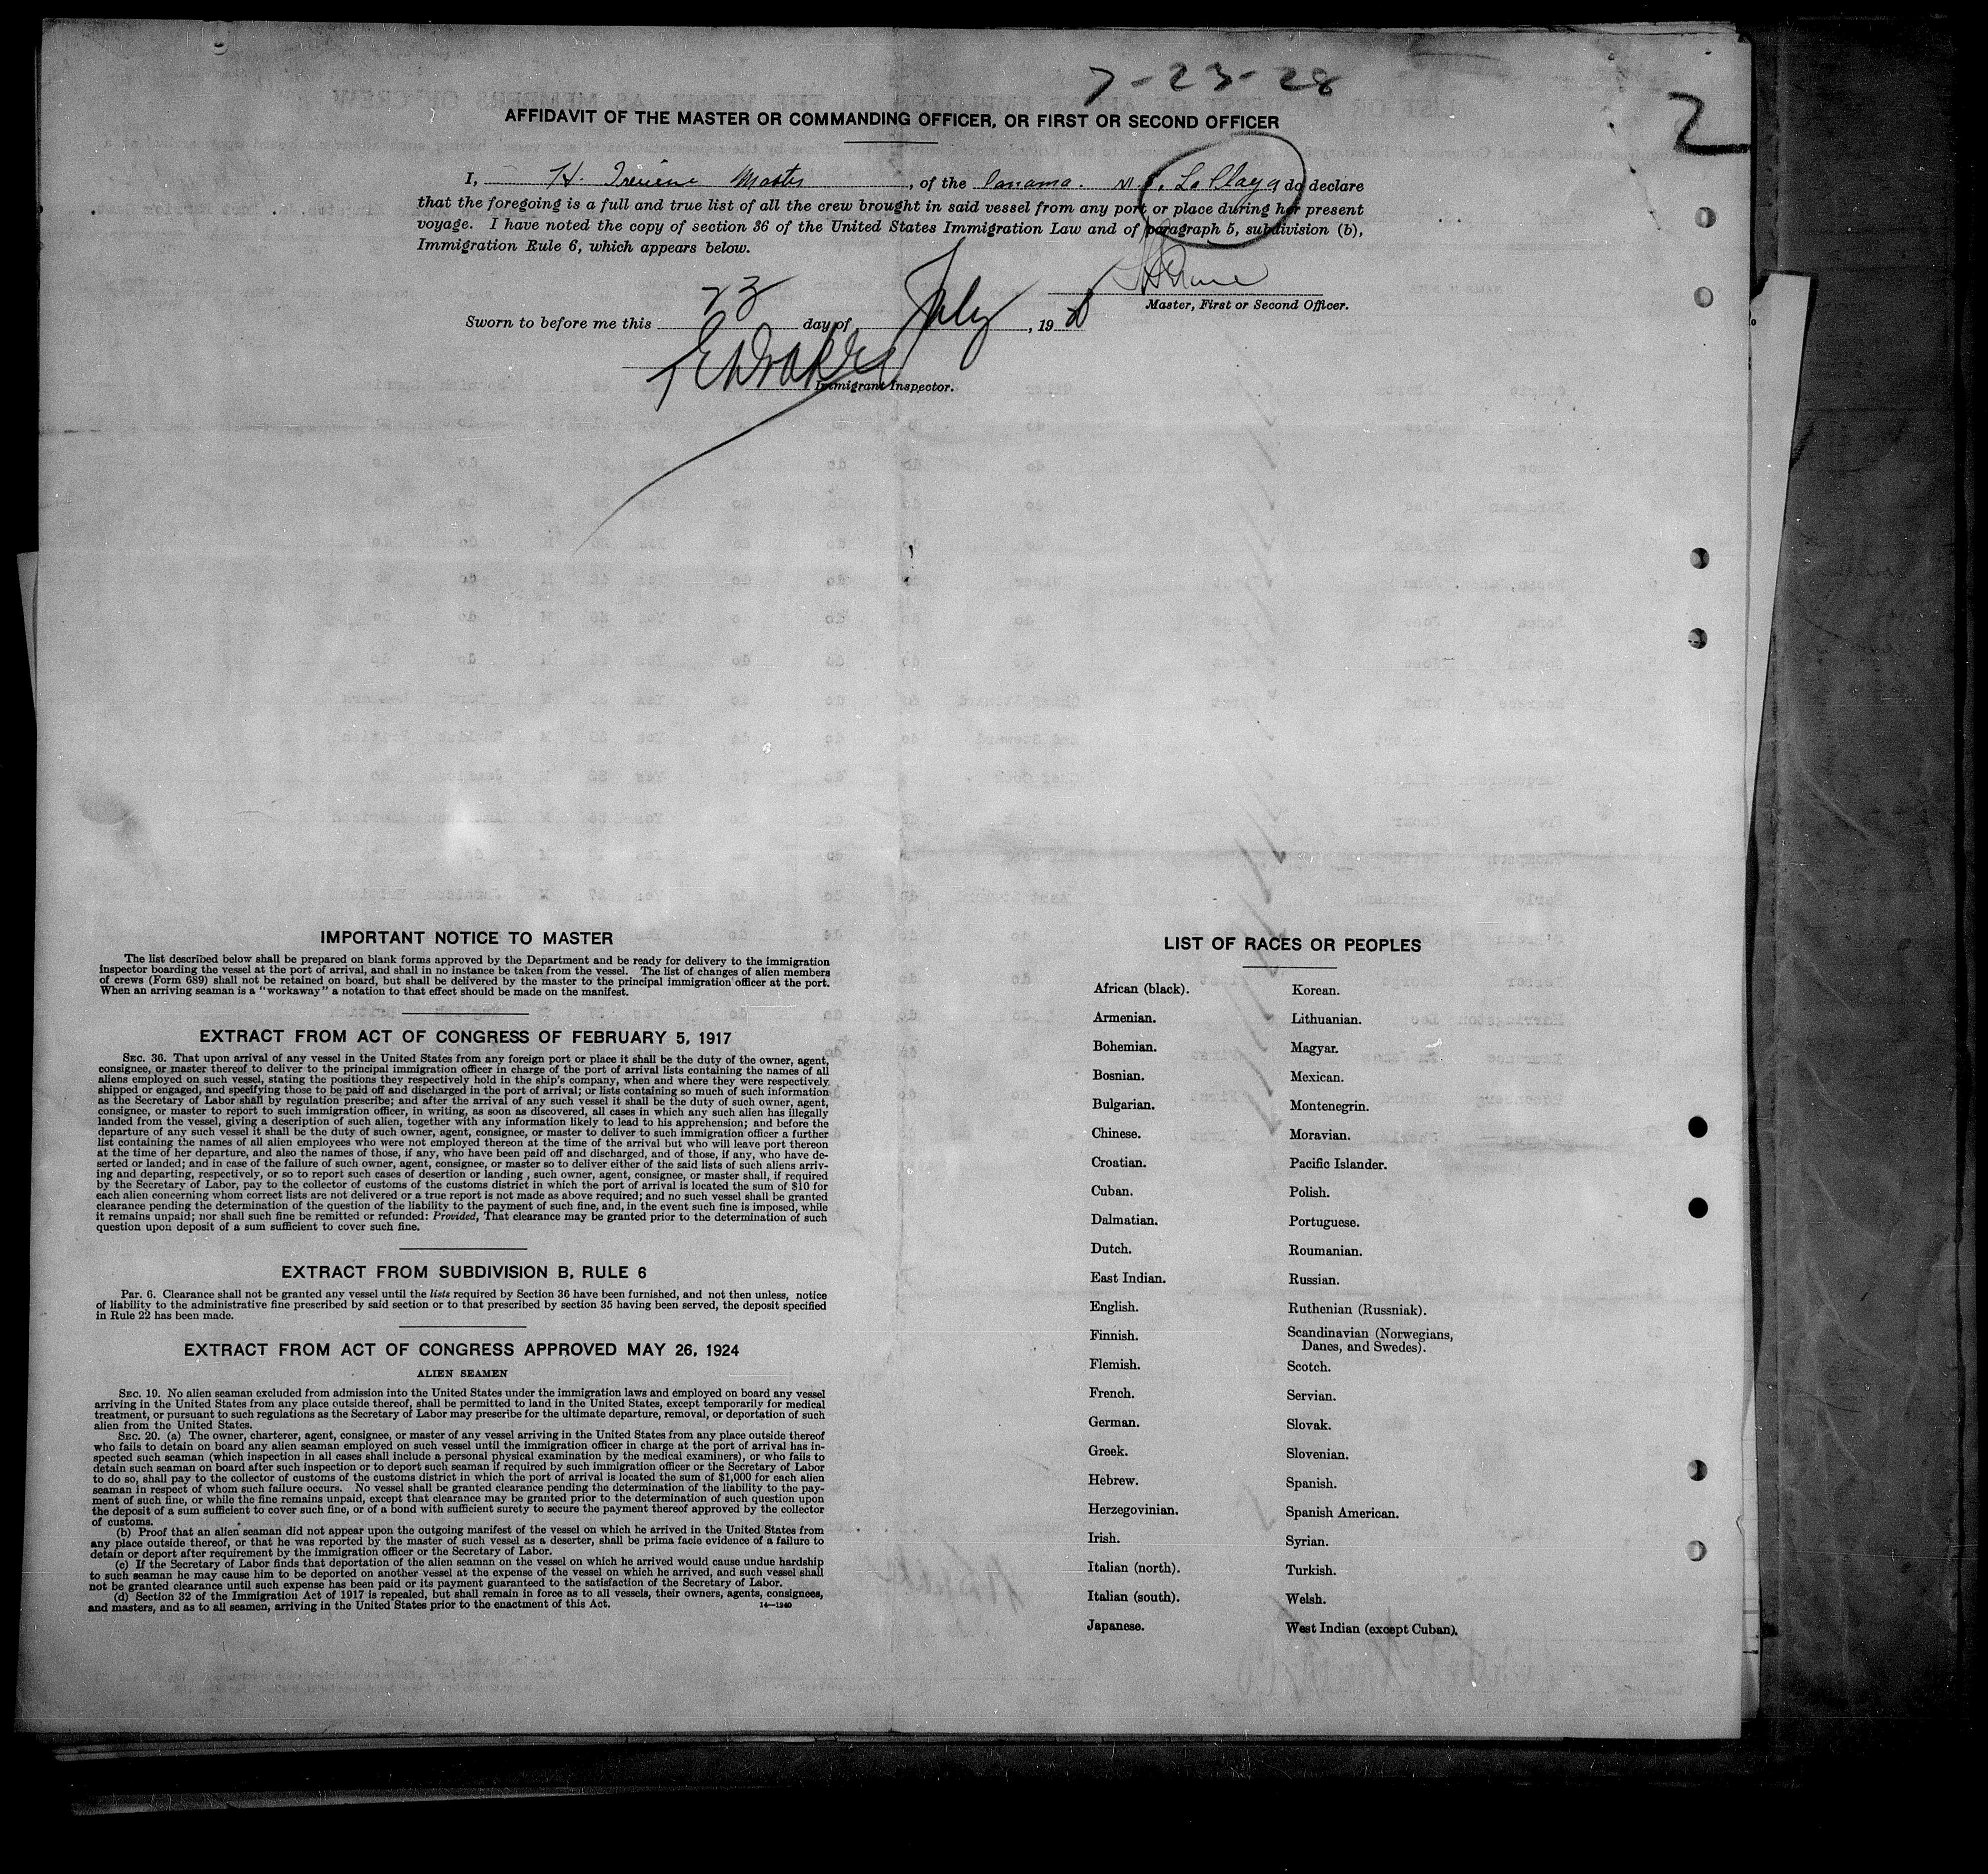 7-23-28
2
AFFIDAVIT OF THE MASTER OR COMMANDING OFFICER, OR FIRST OR SECOND OFFICER
I, H. Master, of the Panama. M.S. La Playa, do declare
that the foregoing is a full and true list of all the crew brought in said vessel from any port or place during her present
voyage. I have noted the copy of section 36 of the United States Immigration Law and of paragraph 5, subdivision (b),
Immigration Rule 6, which appears below.
Master, First or Second Officer.
Sworn to before me this 23 day of July, 19
Immigrant Inspector.
IMPORTANT NOTICE TO MASTER
The list described below shall be prepared on blank forms approved by the Department and be ready for delivery to the immigration
inspector boarding the vessel at the port of arrival, and shall in no instance be taken from the vessel. The list of changes of alien members
of crews (Form 689) shall not be retained on board, but shall be delivered by the master to the principal immigration officer at the port.
When an arriving seaman is a "workaway" a notation to that effect should be made on the manifest.
EXTRACT FROM ACT OF CONGRESS OF FEBRUARY 5, 1917
SEC. 36. That upon arrival of any vessel in the United States from any foreign port or place it shall be the duty of the owner, agent,
consignee, or master thereof to deliver to the principal immigration officer in charge of the port of arrival lists containing the names of all
aliens employed on such vessel, stating the positions they respectively hold in the ship's company, when and where they were respectively
shipped or engaged, and specifying those to be paid off and discharged in the port of arrival; or lists containing so much of such information
as the Secretary of Labor shall by regulation prescribe; and after the arrival of any such vessel it shall be the duty of such owner, agent,
consignee, or master to report to such immigration officer, in writing, as soon as discovered, all cases in which any such alien has illegally
landed from the vessel, giving a description of such alien, together with any information likely to lead to his apprehension; and before the
departure of any such vessel it shall be the duty of such owner, agent, consignee, or master to deliver to such immigration officer a further
list containing the names of all alien employees who were not employed thereon at the time of the arrival but who will leave port thereon
at the time of her departure, and also the names of those, if any, who have been paid off and discharged, and of those, if any, who have de-
serted or landed; and in case of the failure of such owner, agent, consignee, or master so to deliver either of the said lists of such aliens arriv-
ing and departing, respectively, or so to report such cases of desertion or landing, such owner, agent, consignee, or master shall, if required
by the Secretary of Labor, pay to the collector of customs of the customs district in which the port of arrival is located the sum of $10 for
each alien concerning whom correct lists are not delivered or a true report is not made as above required; and no such vessel shall be granted
clearance pending the determination of the question of the liability to the payment of such fine, and, in the event such fine is imposed, while
it remains unpaid; nor shall such fine be remitted or refunded: Provided, That clearance may be granted prior to the determination of such
question upon deposit of a sum sufficient to cover such fine.
EXTRACT FROM SUBDIVISION B, RULE 6
Par. 6. Clearance shall not be granted any vessel until the lists required by Section 36 have been furnished, and not then unless, notice
of liability to the administrative fine prescribed by said section or to that prescribed by section 35 having been served, the deposit specified
in Rule 22 has been made.
EXTRACT FROM ACT OF CONGRESS APPROVED MAY 26, 1924
ALIEN SEAMEN
SEC. 19. No alien seaman excluded from admission into the United States under the immigration laws and employed on board any vessel
arriving in the United States from any place outside thereof, shall be permitted to land in the United States, except temporarily for medical
treatment, or pursuant to such regulations as the Secretary of Labor may prescribe for the ultimate departure, removal, or deportation of such
alien from the United States.
SEC. 20. (a) The owner, charterer, agent, consignee, or master of any vessel arriving in the United States from any place outside thereof
who fails to detain on board any alien seaman employed on such vessel until the immigration officer in charge at the port of arrival has in-
spected such seaman (which inspection in all cases shall include a personal physical examination by the medical examiners), or who fails to
detain such seaman on board after such inspection or to deport such seaman if required by such immigration officer or the Secretary of Labor
to do so, shall pay to the collector of customs of the customs district in which the port of arrival is located the sum of $1,000 for each alien
seaman in respect of whom such failure occurs. No vessel shall be granted clearance pending the determination of the liability to the pay-
ment of such fine, or while the fine remains unpaid, except that clearance may be granted prior to the determination of such question upon
the deposit of a sum sufficient to cover such fine, or of a bond with sufficient surety to secure the payment thereof approved by the collector
of customs.
(b) Proof that an alien seaman did not appear upon the outgoing manifest of the vessel on which he arrived in the United States from
any place outside thereof, or that he was reported by the master of such vessel as a deserter, shall be prima facie evidence of a failure to
detain or deport after requirement by the immigration officer or the Secretary of Labor.
(c) If the Secretary of Labor finds that deportation of the alien seaman on the vessel on which he arrived would cause undue hardship
to such seaman he may cause him to be deported on another vessel at the expense of the vessel on which he arrived, and such vessel shall
not be granted clearance until such expense has been paid or its payment guaranteed to the satisfaction of the Secretary of Labor.
(d) Section 32 of the Immigration Act of 1917 is repealed, but shall remain in force as to all vessels, their owners, agents, consignees,
and masters, and as to all seamen, arriving in the United States prior to the enactment of this Act. 14—1240
LIST OF RACES OR PEOPLES
African (black).
Armenian.
Bohemian.
Bosnian.
Bulgarian.
Chinese.
Croatian.
Cuban.
Dalmatian.
Dutch.
East Indian.
English.
Finnish.
Flemish.
French.
German.
Greek.
Hebrew.
Herzegovinian.
Irish.
Italian (north).
Italian (south).
Japanese.
Korean.
Lithuanian.
Magyar.
Mexican.
Montenegrin.
Moravian.
Pacific Islander.
Polish.
Portuguese.
Roumanian.
Russian.
Ruthenian (Russniak).
Scandinavian (Norwegians,
Danes, and Swedes).
Scotch.
Servian.
Slovak.
Slovenian.
Spanish.
Spanish American.
Syrian.
Turkish.
Welsh.
West Indian (except Cuban).